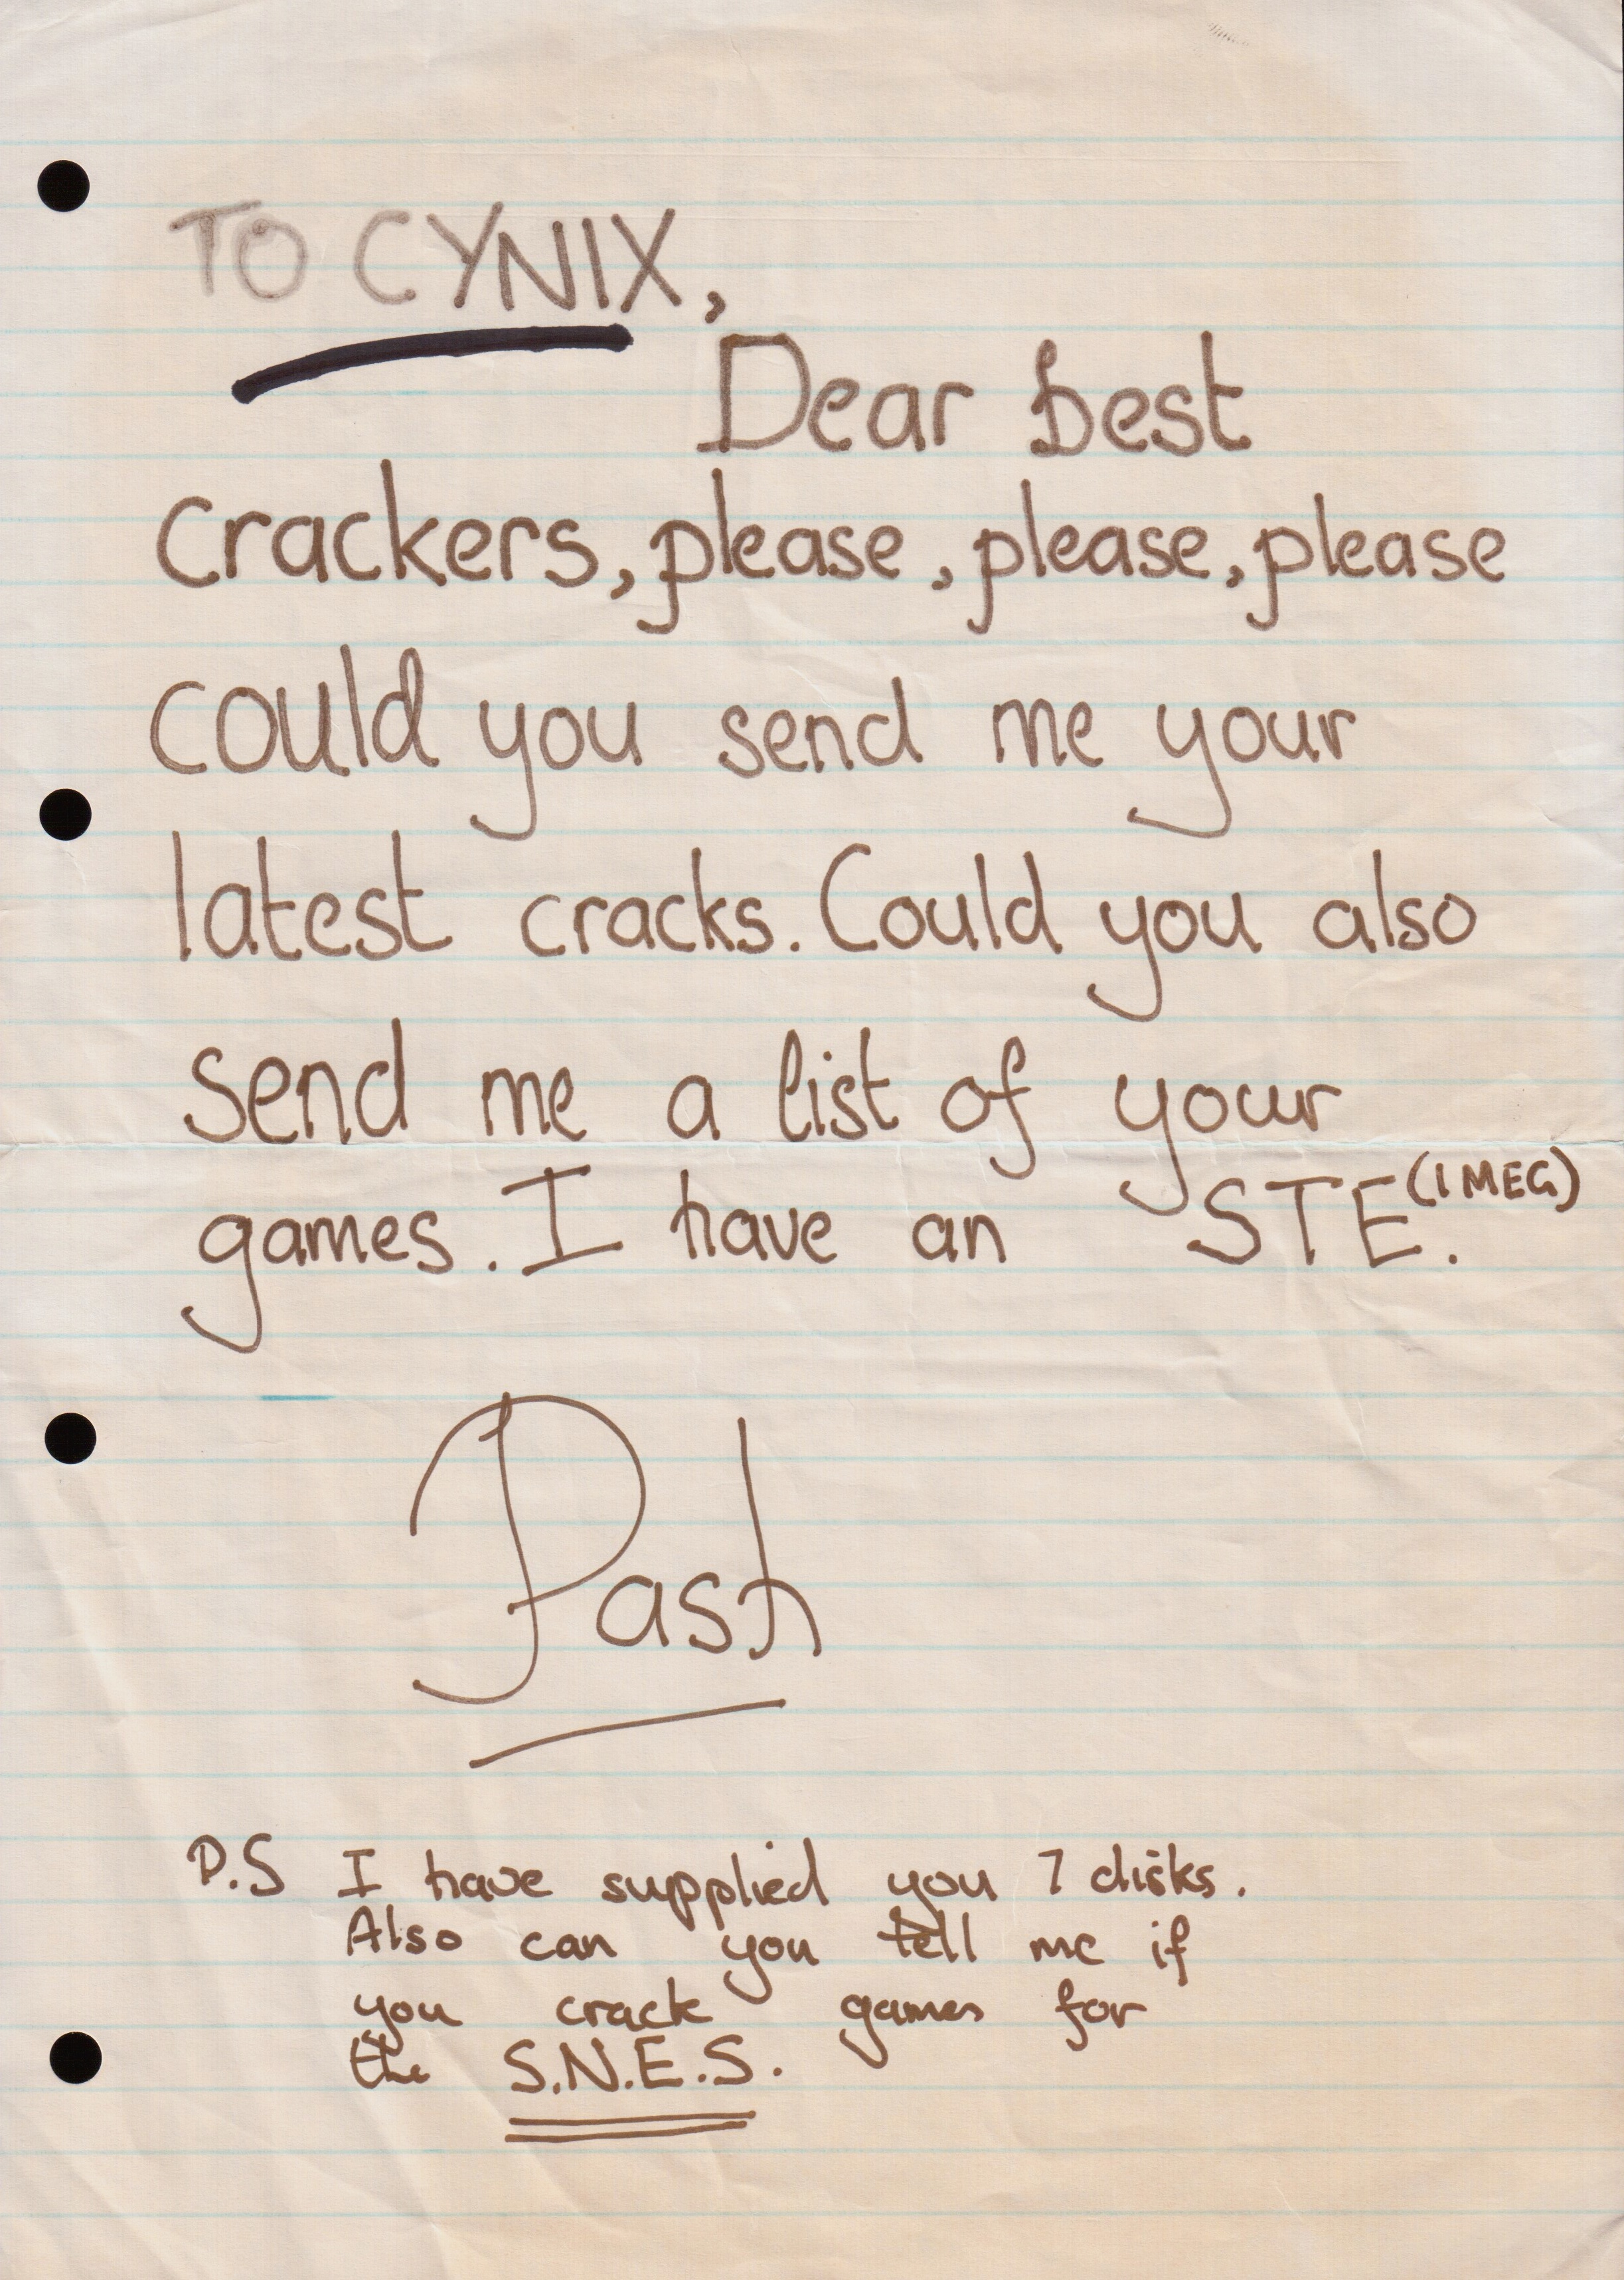 TO CYNIX,
Dear best
Crackers, please, please, please
could you send me your
latest cracks. Could you also
send me a list of your
games. I have an STE (1 MEG).
Pash
P.S I have supplied you 7 disks.
Also can you tell me if
you crack games for
the S.N.E.S.